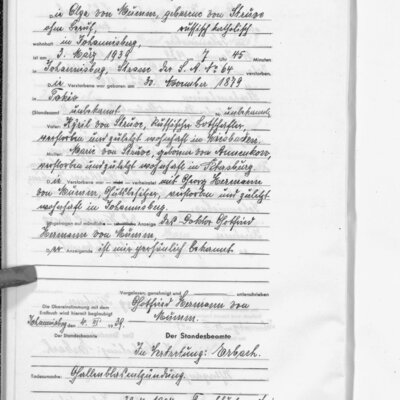 Die Olga von Mumm, geborene von Struve
ohne Beruf, russisch katholisch
wohnhaft in Johannisberg,
ist am 3. März 1938 7 Uhr 45 Minuten
in Johannisberg, Strasse der S.A. No 64 verstorben.
Die Verstorbene war geboren am 30. November 1879
in Tokio
(Standesamt unbekannt Nr. unbekannt)
Vater: Kyril von Struve, russischer Botschafter,
verstorben und zuletzt wohnhaft in Wiesbaden.
Mutter: Marie von Struve, geborene von Annenkow,
verstorben und zuletzt wohnhaft in Petersburg.
Die Verstorbene war verheiratet mit Georg Hermann
von Mumm, Gutsbesitzer, verstorben und zuletzt
wohnhaft in Johannisberg.
Eingetragen auf mündliche Anzeige des Doktor Gottfried
Hermann von Mumm,
Der Anzeigende ist mir persönlich bekannt.
Vorgelesen, genehmigt und unterschrieben
Die Übereinstimmung mit dem Gottfried Hermann von
Erstbuch wird hiermit beglaubigt Mumm.
Johannisberg, den 4. VI. 39.
Der Standesbeamte Der Standesbeamte
In Vertretung: Erbach.
Todesursache: Gallenblasenentzündung.